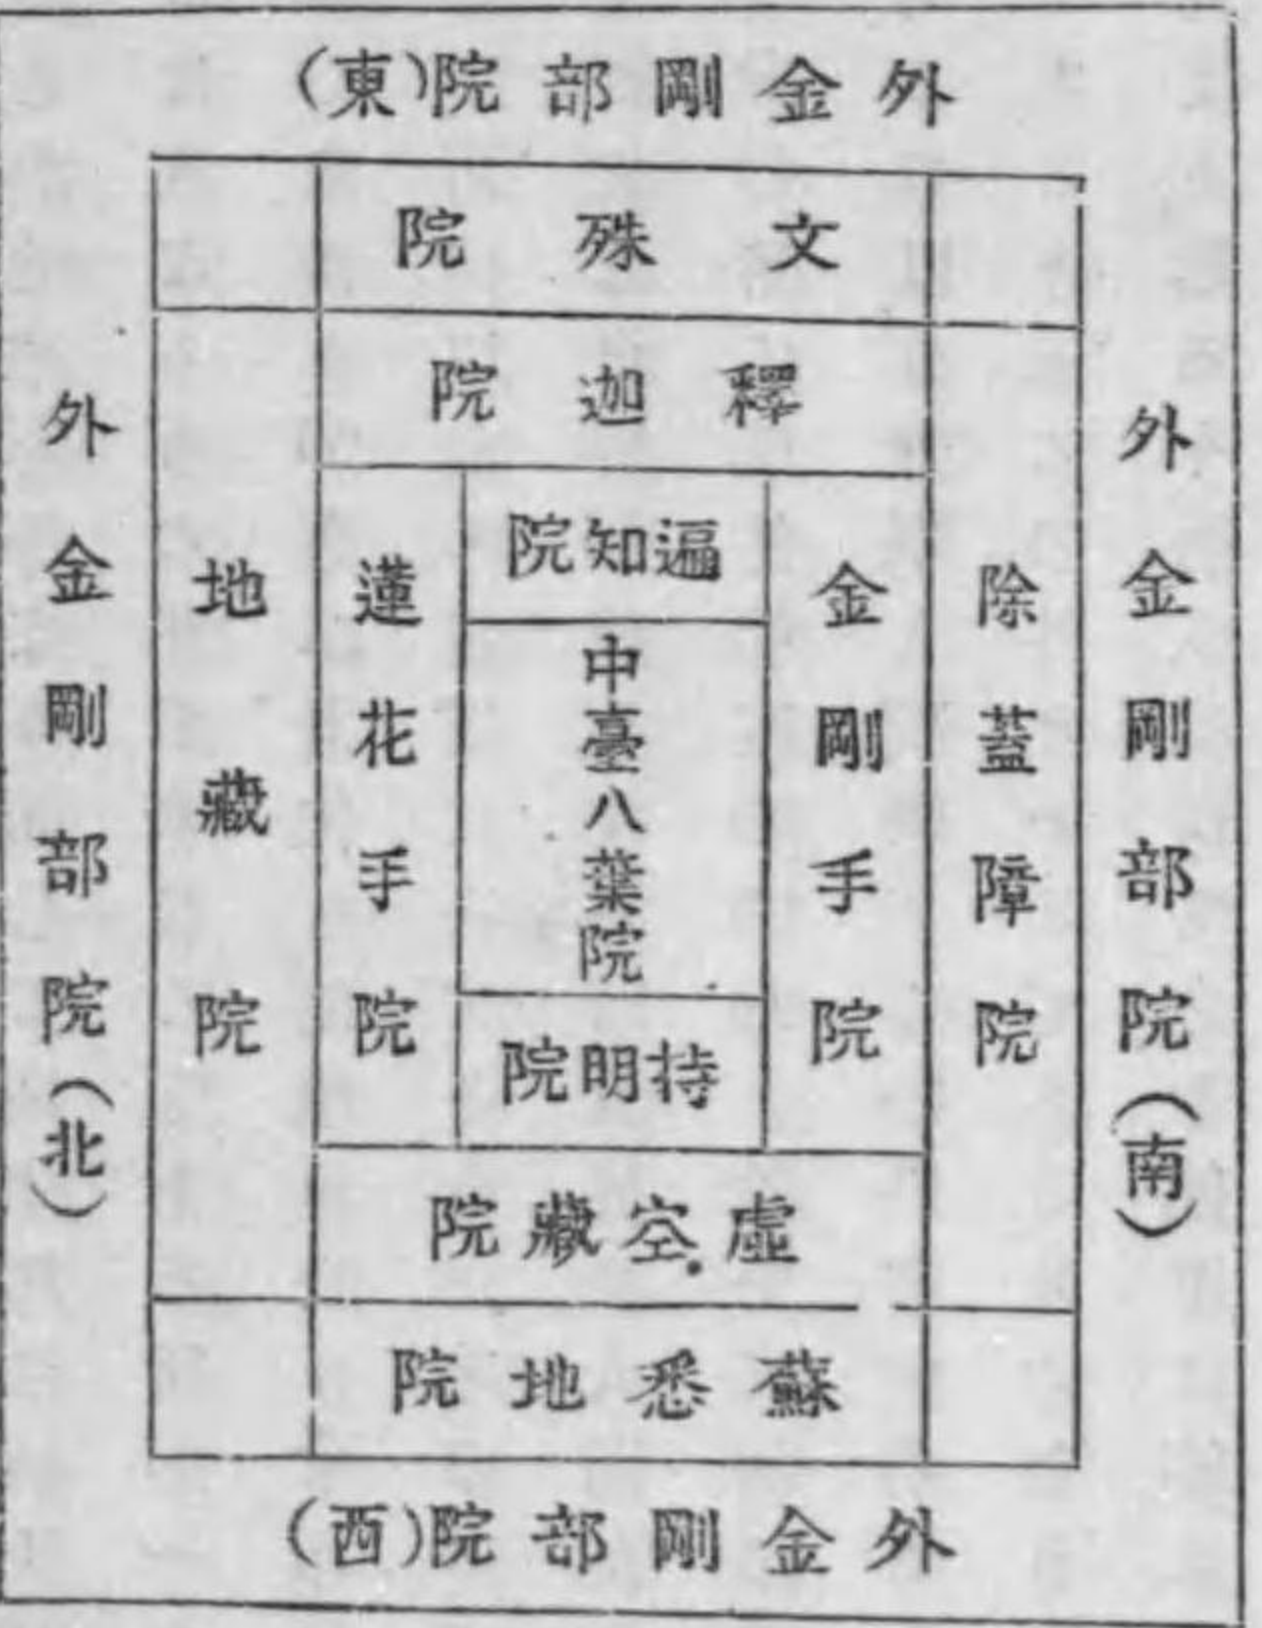 外金剛部院(東)
文殊院
釋迦院
遍知院
外金剛部院(南)
除蓋障院
金剛手院
中臺八葉院
蓮花手院
地藏院
外金剛部院(北)
持明院
虛空藏院
蘇悉地院
外金剛部院(西)